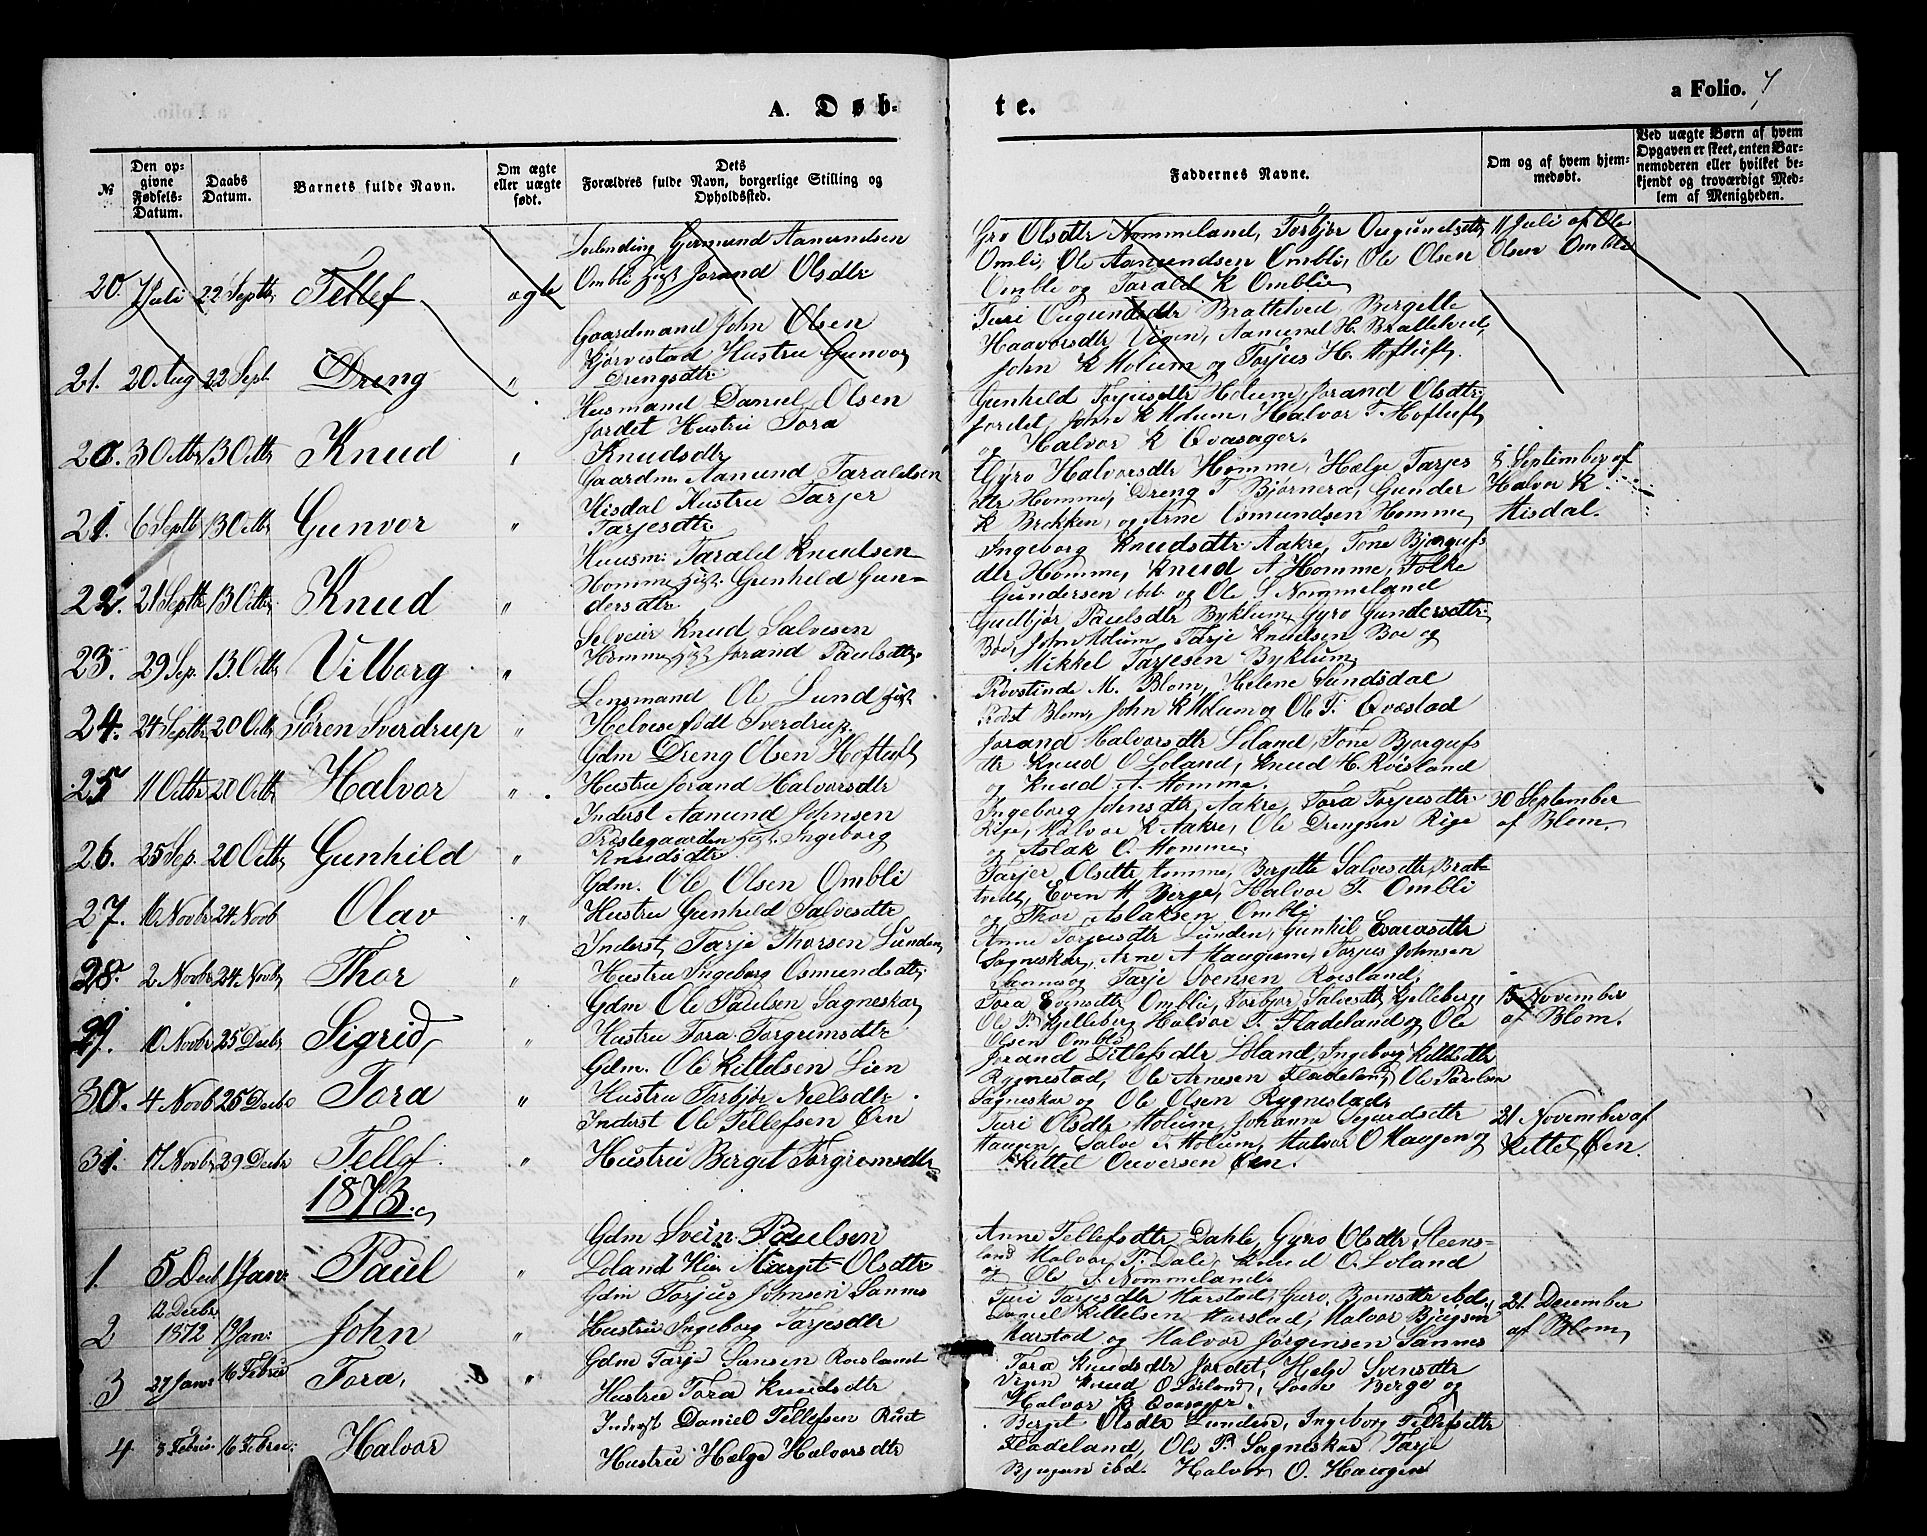 A. Døb-
te.
a Folio. 7
№
Den op-
givne
Fødsels-
Datum.
Daabs
Datum.
Barnets fulde Navn.
Om ægte
eller uægte
født.
Dets
Forældres fulde Navn, borgerlige Stilling og
Opholdssted.
Faddernes Navne.
Om og af hvem hjem-
medøbt.
Ved uægte Børn af hvem
Opgaven er skeet, enten Bar-
nemoderen eller hvilket be-
kjendt og troværdigt Med-
lem af Menigheden.
20. 7 Juli 22 Septbr Tellef ægte
Gunmund Aanundsen
Ombli Jorand Olsdtr
Gro Olsdtr Nommeland, Torbjør Ougundsdtr
Omli, Ole Aanundsen Ombli, Ole Olsen
Omble og Tarald K Omblie
11 Juli af Ole
Olsen Omble
21. 20 Aug 22 Sept. Dreng "
Gaardmand John Olsen
Kjørvestad Hustru Gunvor
Drengsdtr.
Turi Ougundsdtr Brattelved Bergette
Haavorsdtr Vigen, Aanund H. Brattelved,
John K Molum og Torjus H. Hoftuft.
20. 3 Octbr 13 Octbr Knud "
Husmand Daniel Olsen
Jordet Hustru Tora
Knudsdtr
Gunhild Torjusdtr Holum, Jorand Olsdtr.
Jordet, John K Molum, Halvor T. Hoftuft
og Halvor K Qvasager.
21. 6 Septb 13 Octbr Gunvor "
Gaardm. Aamund Taraldsen
Misdal Hustru Tarjer
Tarjesdtr.
Gyro Halvorsdtr Homme, Hælge Tarjes
dtr Homme, Dreng T Bjørnera, Gunder
K Brokken, og Arne Osmundsen Homme
8 September af
Halvor K
Misdal.
22. 21 Septbr 13 Octbr Knud "
Huusm: Tarald Knudsen
Homme Gunhild Gun-
dersdtr.
Ingeborg Knudsdtr Aakre, Tone Bjorgufs
dtr Homme, Knud A Homme, Folke
Gundersen ibd. og Ole S Nommeland
23. 29 Sep. 13. Octbr Vilborg "
Selveier Knud Salvesen
Homme Jorand Paulsdtr.
Gudbjør Paulsdtr Byklum, Gyro Gundersdtr:
Bøe, John Molum, Tarje Knudsen Boe og
Mikkel Tarjesen Byklum
24. 24 Septbr 20 Octbr Søren Sverdrup "
Lensmand Ole Lund
Helvese født Sverdrup.
Provstinde M. Blom, Helene Sundsdal
Provst Blom, John K Molum og Ole T. Qvæstad
25 11 Octbr 20 Octbr Halvor "
Gdm Dreng Olsen Hoftuft
Hustru Jorand Halvorsdtr
Jorand Halvorsdtr Loland, Tone Bjorgufs
dtr Knud O Loland, Knud H. Roisland
og Knud A. Homme.
26. 25 Sep. 20 Octbr Gunhild "
Inderst Aanund Johnsen
Præstegaarden Ingeborg
Knudsdtr
Ingeborg Johnsdtr Aakre, Tora Torjusdtr
Rige, Halvor K Aakre, Ole Drengsen Rige
og Aslak O. Homme.
30 September
af Blom.
27. 16 Novbr 24 Novb Olav "
Gdm. Ole Olsen Ombli
Hustru Gunhild Salvesdtr
Tarjer Olsdtr Homme, Bergitte Salvesdtr, Brat-
tveit, Even H. Berge, Halvor T. Ombli
og Thor Aslaksen Ombli
28. 2 Novbr 24 Novbr Thor "
Inderst, Tarje Thorsen Lunden
Hustru Ingeborg Osmundsdtr.
Anne Torjusdtr Lunden, Gunhil Esaiasdtr
Sagneskar, Arne A Haugum, Torjus Johnsen
Sannes og Tarje Svensen Roisland.
29. 10 Novbr 25 Decbr Sigrid, "
Gdm Ole Paulsen Sagneskar
Hustru Tora Torgrimsdtr
Tora Evensdtr Ombli, Torbjor Salvesdtr Kjelleberg,
Ole P. Kjelleberg Halvor T. Fladeland og Ole
Olsen Ombli
15 November
af Blom.
30. 4 Novb 25 Decbr Tora "
Gdm. Ole Kittelsen Lien
Hustru Torbjør Nielsdtr
Jorand Ditlefsdtr Loland, Ingeborg Kittelsdtr
Rygnestad, Ole Arnesen Fladeland, Ole Paulsen
Sagneskar og Ole Olsen Rygnestad
31. 17 Novbr 29 Decbr Tellef. "
Inderst Ole Tellefsen Øen
Hustru Berget Torgrimsdtr
Turi Olsdtr Molum, Johanne Sigurdsdtr
Haugen, Salve T. Molum, Halvor O Haugen og
Kittel Ouversen Øen.
21 November af
Kittel Øen.
1873.
1 5 Decbr 1 Jan: Paul "
Gdm Svein Paulsen
Loland Hu: Margit Olsdtr
Anne Tellefsdtr Dahle, Gyro Olsdtr Steens-
land Halvor P. Dale, Knud O. Loland
og Ole S. Nommeland.
2 12 Decbr 1872 19 Jan: John "
Gdm Torjus Johnsen Sannes
Hustru Ingeborg Tarjesdtr
Turi Tarjesdtr Harstad, Guro Bjornsdtr ibd.,
Daniel Kittelsen Harstad, Halvor Bjugsen
Harstad og Halvor Jorgensen Sannes
21. December
af Blom
3 27 Jan: 16 Febru Tora, "
Gdm Tarje Roisland
Hustru Tora Knudsdtr
Tora Knudsdtr Jordet, Helge Svensdtr
Viken Knud O Loiland, Berge og
Halvor K Qvasager.
4 5 Febru. 16 Febru: Halvor
Inderst Daniel Tellefsen
Hustru Hælge Halvorsdtr
Berget Olsdtr Lunden, Ingeborg Tellefsdtr
Fladeland, Ole P. Sagneskar, Tarje
Bjugsen ibd. Halvor O. Haugen